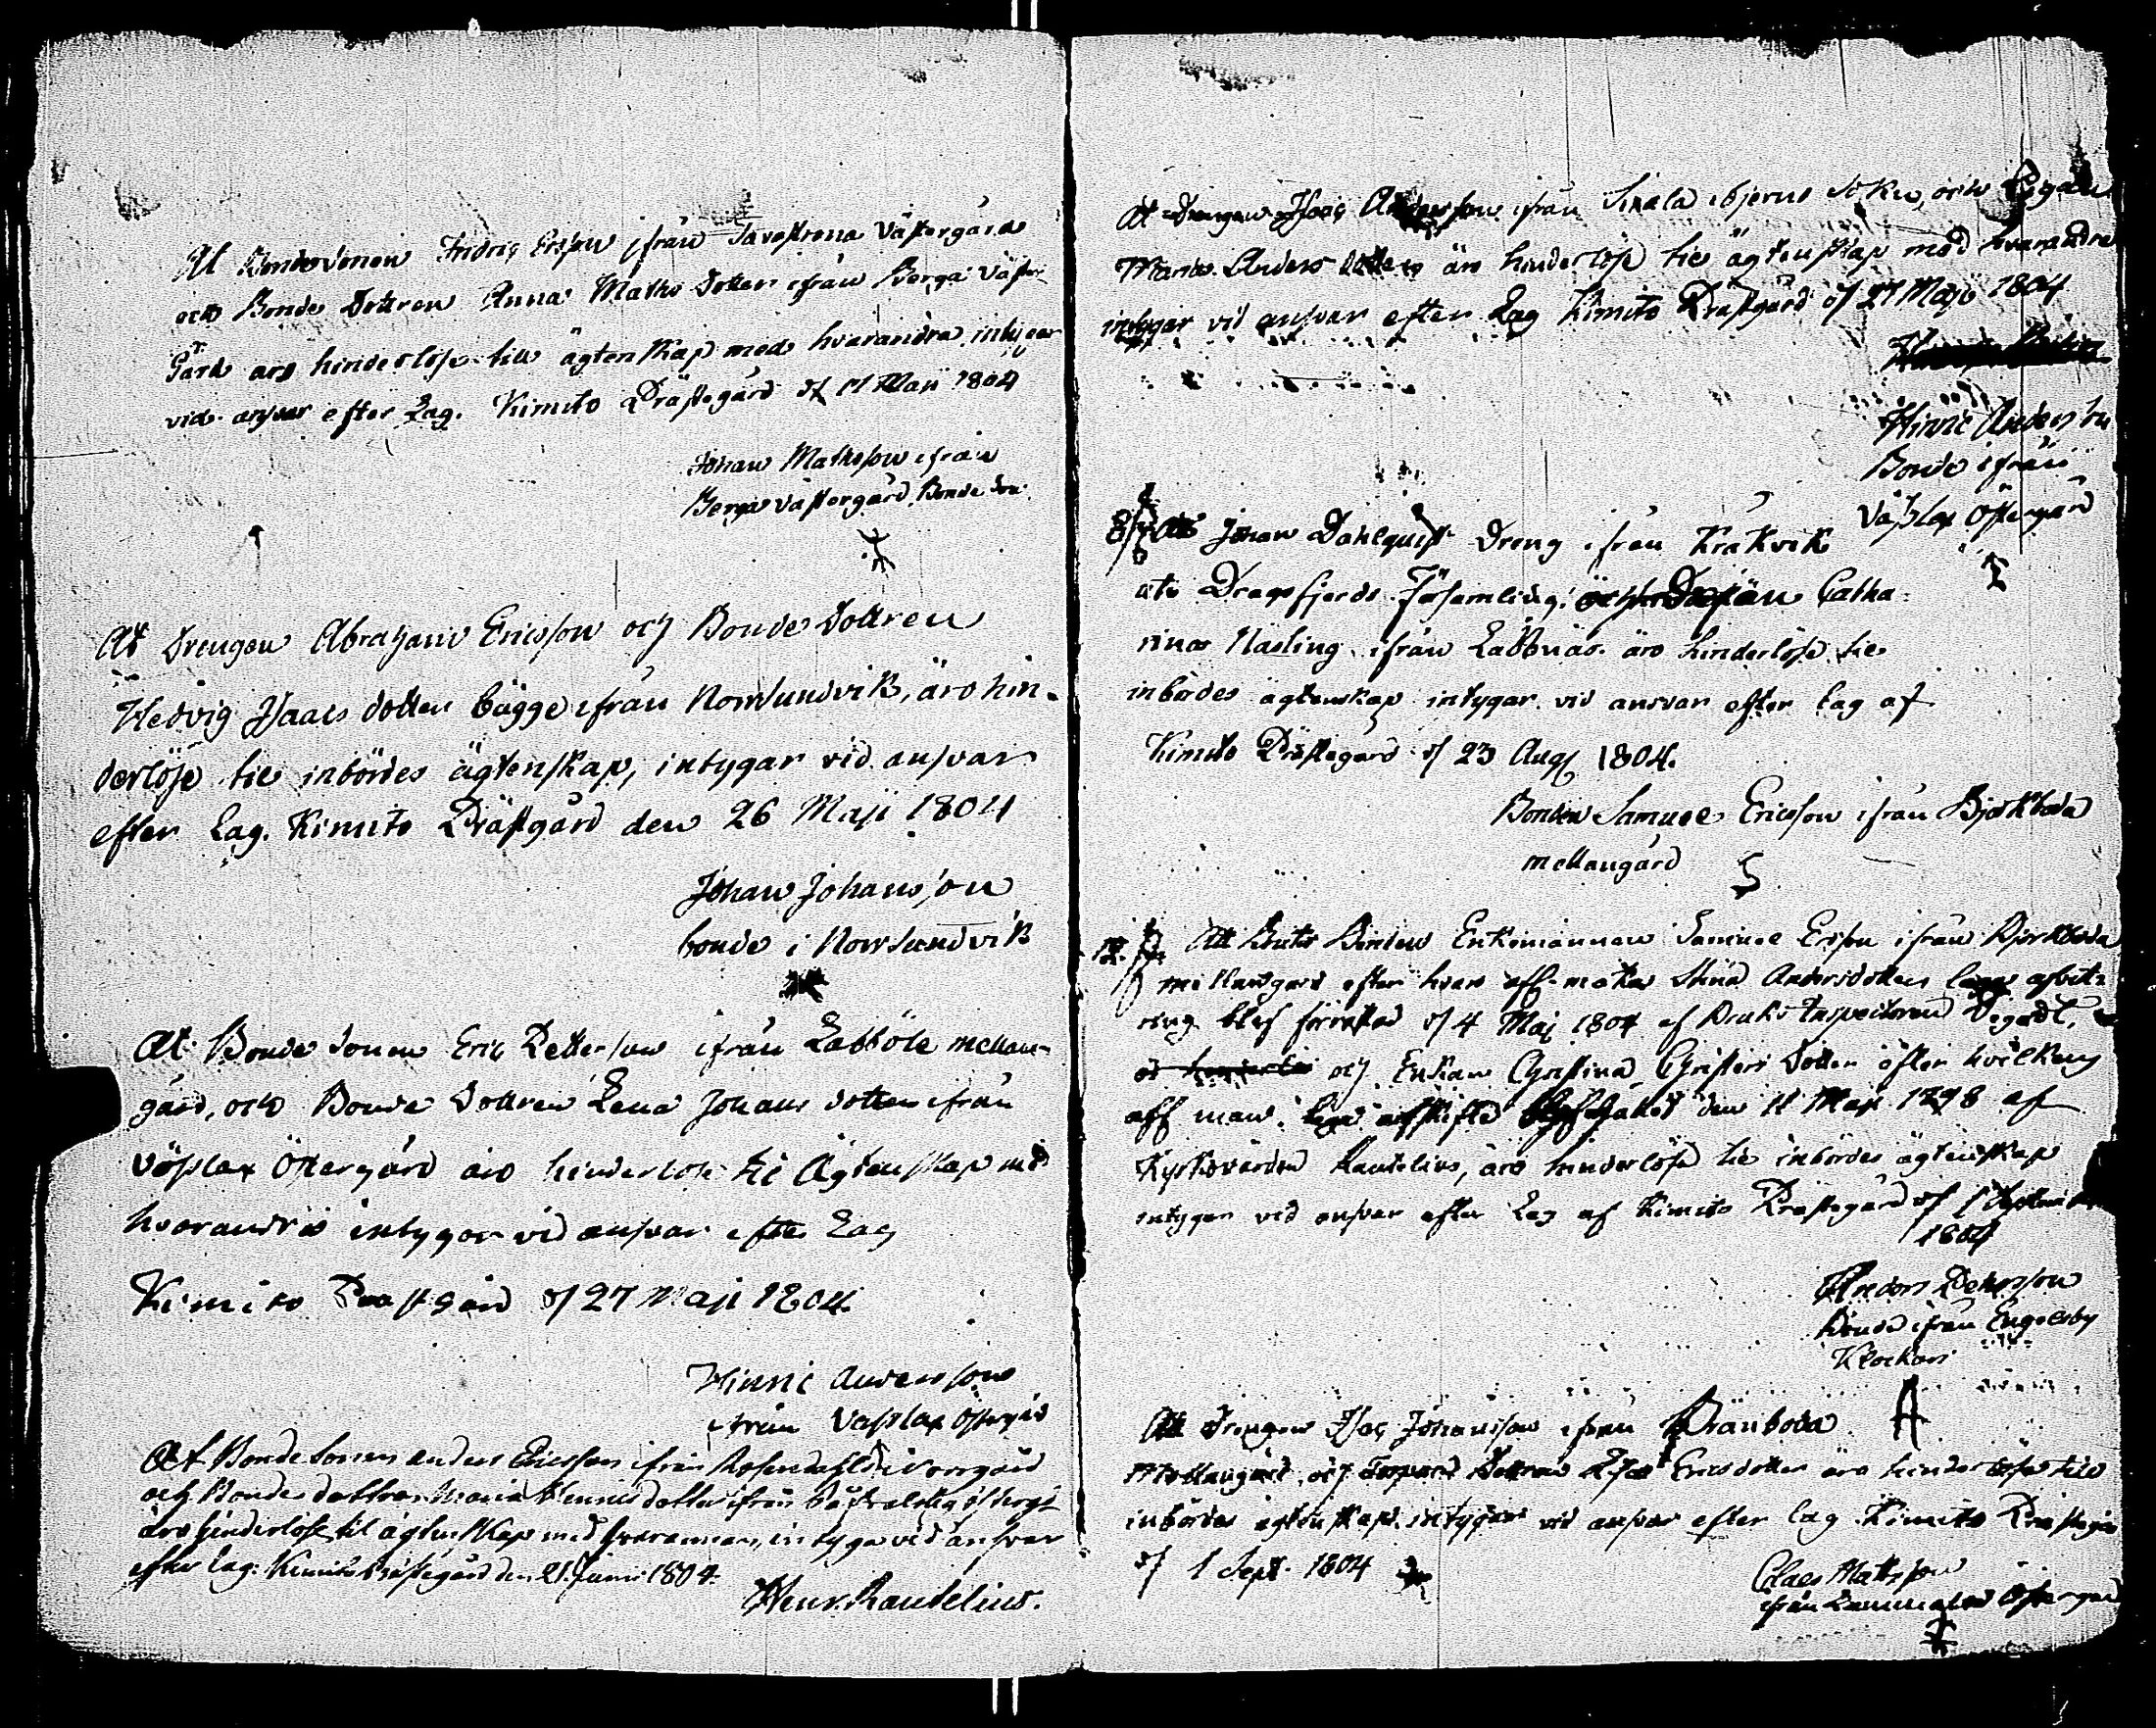 At Bondesonen Fridric Ersson ifrån Västergård
och Bonde Dottren Anna Maths Dotter ifrån Berga Väster
Gård äro hinderlöse till ägtenskap med hvarandra intygar
vid answar efter Lag. Kimito Prästegård Maji 1804
Johan Mathsson ifrån
Berga Västergård Bonde Son
At Drengen Abraham Ericsson och Bonde Dottren
Hedvig Isaacs dotter bägge ifrån Norrsundvik, äro hin-
derlöse til inbördes ägtenskap, intygar vid answar
efter Lag. Kimito Prästgård den 26 Maji 1804
Johan Johansson
bonde i Norrsundvik
At Bonde Sonen Eric Petterson ifrån Labböle mellan-
gård, och Bonde Dottren Lena Johans dotter ifrån
Vässlax Östergård äro hinderlöse til Ägtenskap med
hvarandra intygar vid answar efter Lag
Kimito Prästgård d 27 Maji 1804.
Hinric Andersson
ifrån Vässlax Östergård
At Bonde Sonen Anders Ericsson ifrån Rosendahl Norrgård
och Bonde dottren Maria Henricsdotter ifrån
äro hinderlöse til ägtenskap med hvarannan, intygar vid answar
efter lag. Kimito Prästegård den 21 Junii 1804.
Henr. Rautelius.
At Drengen Isaac Andersson ifrån Bjerno Sokn, och Pigan
Maria Anders dotter äro hinderlöse til ägtenskap med hvarandra
intygar vid answar efter Lag Kimito Prästgård d 27 Maji 1804
Hinric Andersson
Bonde ifrån
Vässlax Östergård
Att Johan Dahlquist Dreng ifrån Kråkvik
uti Dragsfjerds Församling, Catha-
rina Näsling ifrån Labbnäs äro hinderlöse til
inbördes ägtenskap intygar vid ansvar efter lag af
Kimito Prästegård d 23 Aug 1804.
Bonden Samuel Ericsson ifrån Björkboda
mellangård
Att Bonden Enkemannen Samuel Ersson ifrån Björkboda
mellangård efter hvars afl. maka Andersdotter afvit-
ring blef förrettad d 4 Maj 1804 af Bruks Inspectoren
och Enkan Christina Christers Dotter efter hvilkens
afl man den 11 Maji 1798 af
Kyrkovärden Rautelius, äro hinderlöse til inbördes ägtenskap
intygar vid answar efter Lag af Kimito Prästegård d 1 September
1804
Anders Pettersson
Bonde ifrån Engelsby
Klockars
Att Drengen Isac Johansson ifrån Bränboda
Mellangård, och Dottren Lisa Ericsdotter äro hinderlöse till
inbördes ägtenskap, intygar vid answar efter lag. Kimito Prästegård
d 1 Sept. 1804
Claes Mattsson
ifrån Östergård